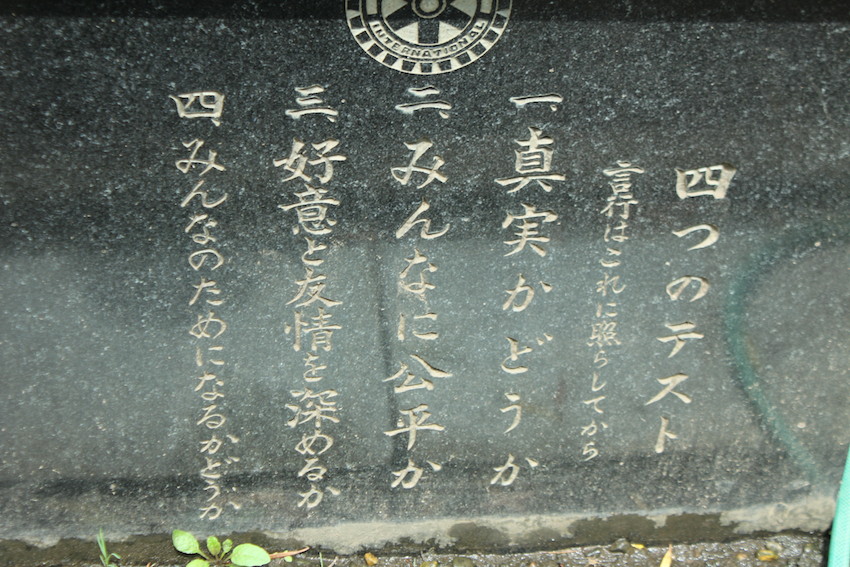 INTERNATIONAL
四つのテスト
言行はこれに照らしてから
一、真実かどうか
二、みんなに公平か
三、好意と友情を深めるか
四、みんなのためになるかどうか